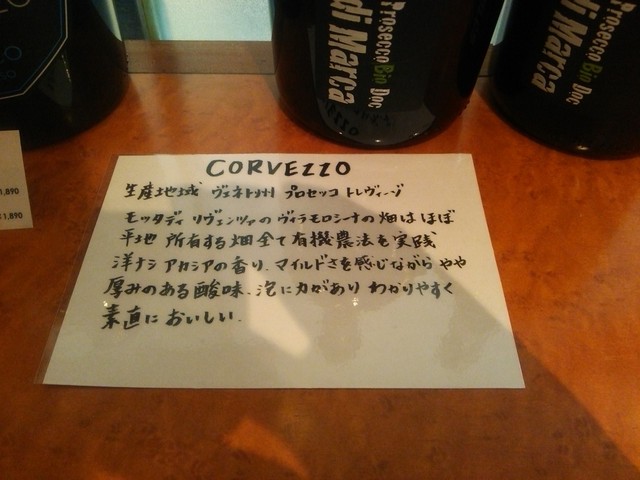 Prosecco Bio Doc
di Marca
Prosecco Bio Doc
di Marca
CORVEZZO
生産地域 ヴェネト州 プロセッコ トレヴィーゾ
モッタディ リヴェンツァの ヴィラモロシーナの 畑は ほぼ
平地 所有する畑全て有機農法を実践
洋ナシ アカシアの香り、マイルドさを感じながら やや
厚みのある酸味、泡に力があり わかりやすく
素直に おいしい.
1,890
1,890